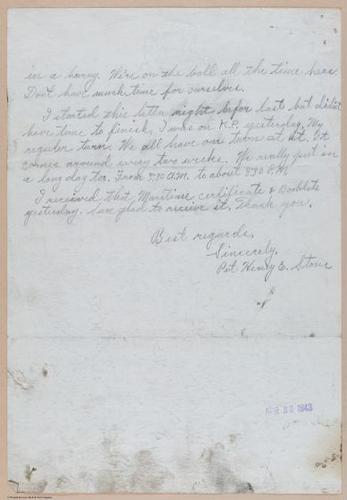 in a hurry. We're on the ball all the time here.
Don't have much time for ourselves.
I started this letter night befor last but didn't
have time to finish, I was on K.P. yesterday. My
regular turn. We all have our turns at it. It
comes around every two weeks. We really put in
a long day too. From 5:30 A.M. to about 8:30 P.M.
I received that Maritime certificate & Booklets
yesterday. I am glad to receive it. Thank you.
Best regards,
Sincerely,
Pvt Henry E. Stone
1943